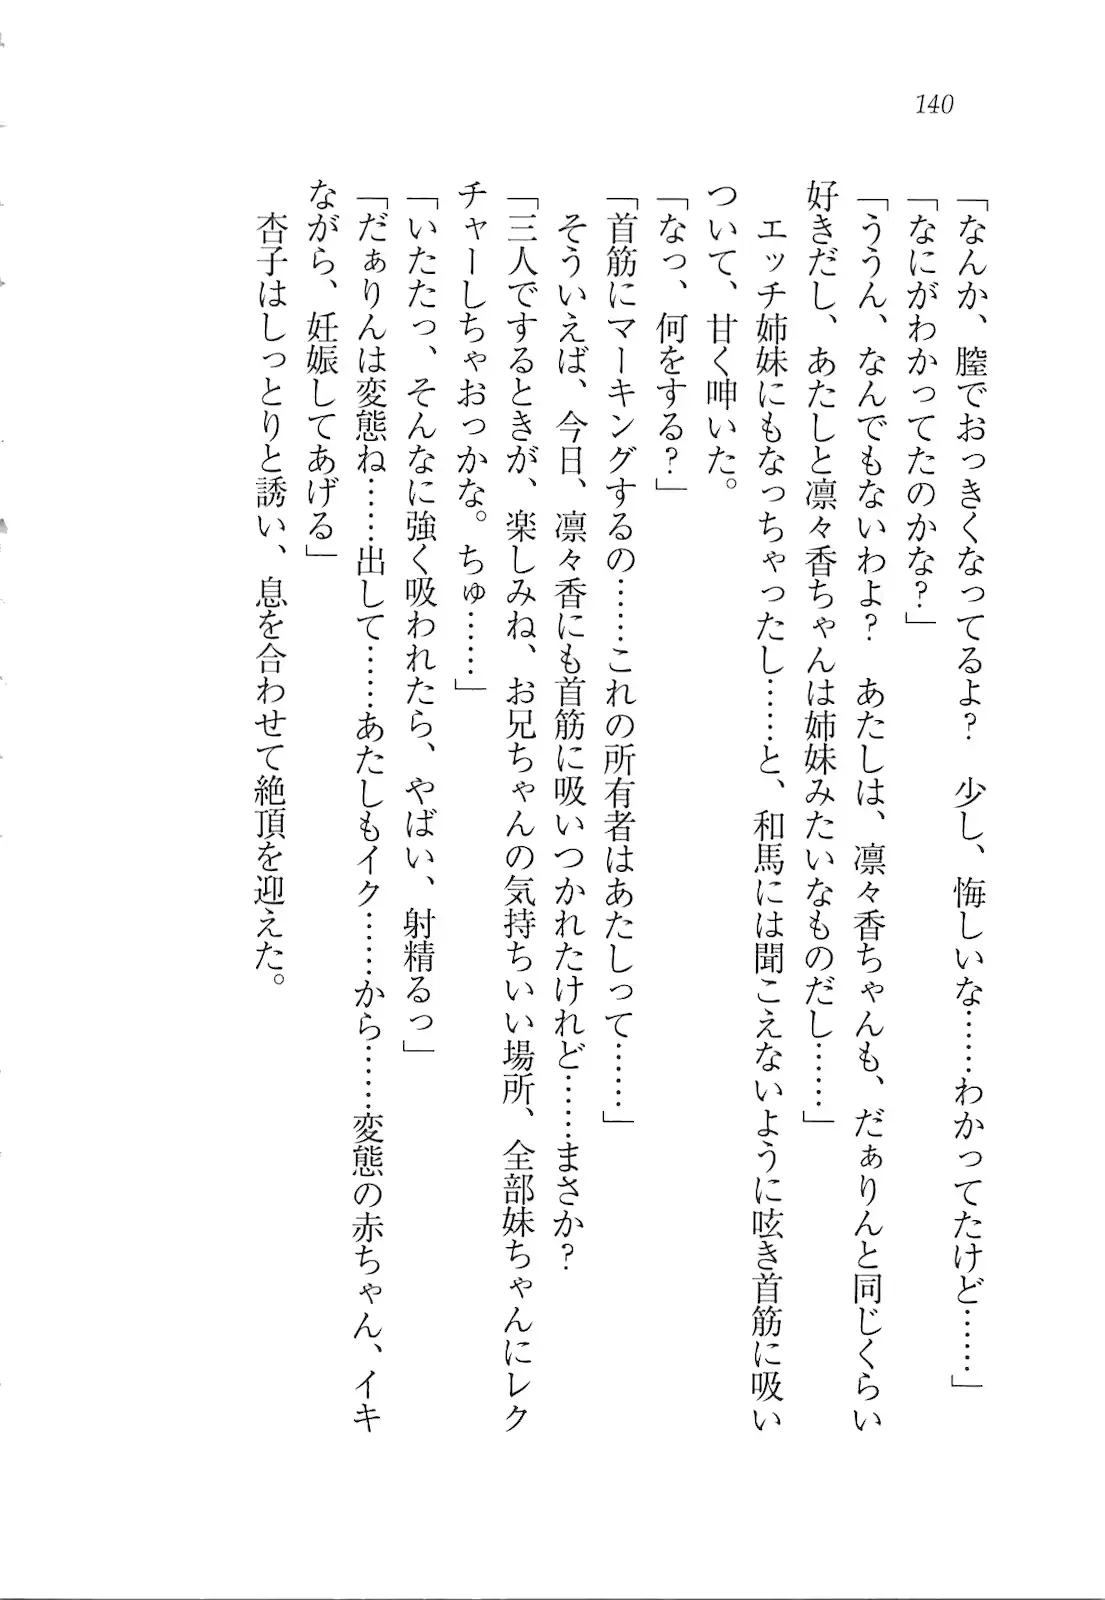 140
「なんか、膣でおっきくなってるよ？　少し、悔しいな……わかってたけど……」
「なにがわかってたのかな？」
「ううん、なんでもないわよ？　あたしは、凛々香ちゃんも、だぁりんと同じくらい
好きだし、あたしと凛々香ちゃんは姉妹みたいなものだし……」
　エッチ姉妹にもなっちゃったし……と、和馬には聞こえないように呟き首筋に吸い
ついて、甘く呻いた。
「なっ、何をする？」
「首筋にマーキングするの……これの所有者はあたしって……」
　そういえば、今日、凛々香にも首筋に吸いつかれたけれど……まさか？
「三人でするときが、楽しみね、お兄ちゃんの気持ちいい場所、全部妹ちゃんにレク
チャーしちゃおっかな。ちゅ……」
「いたたっ、そんなに強く吸われたら、やばい、射精るっ」
「だぁりんは変態ね……出して……あたしもイク……から……変態の赤ちゃん、イキ
ながら、妊娠してあげる」
　杏子はしっとりと誘い、息を合わせて絶頂を迎えた。